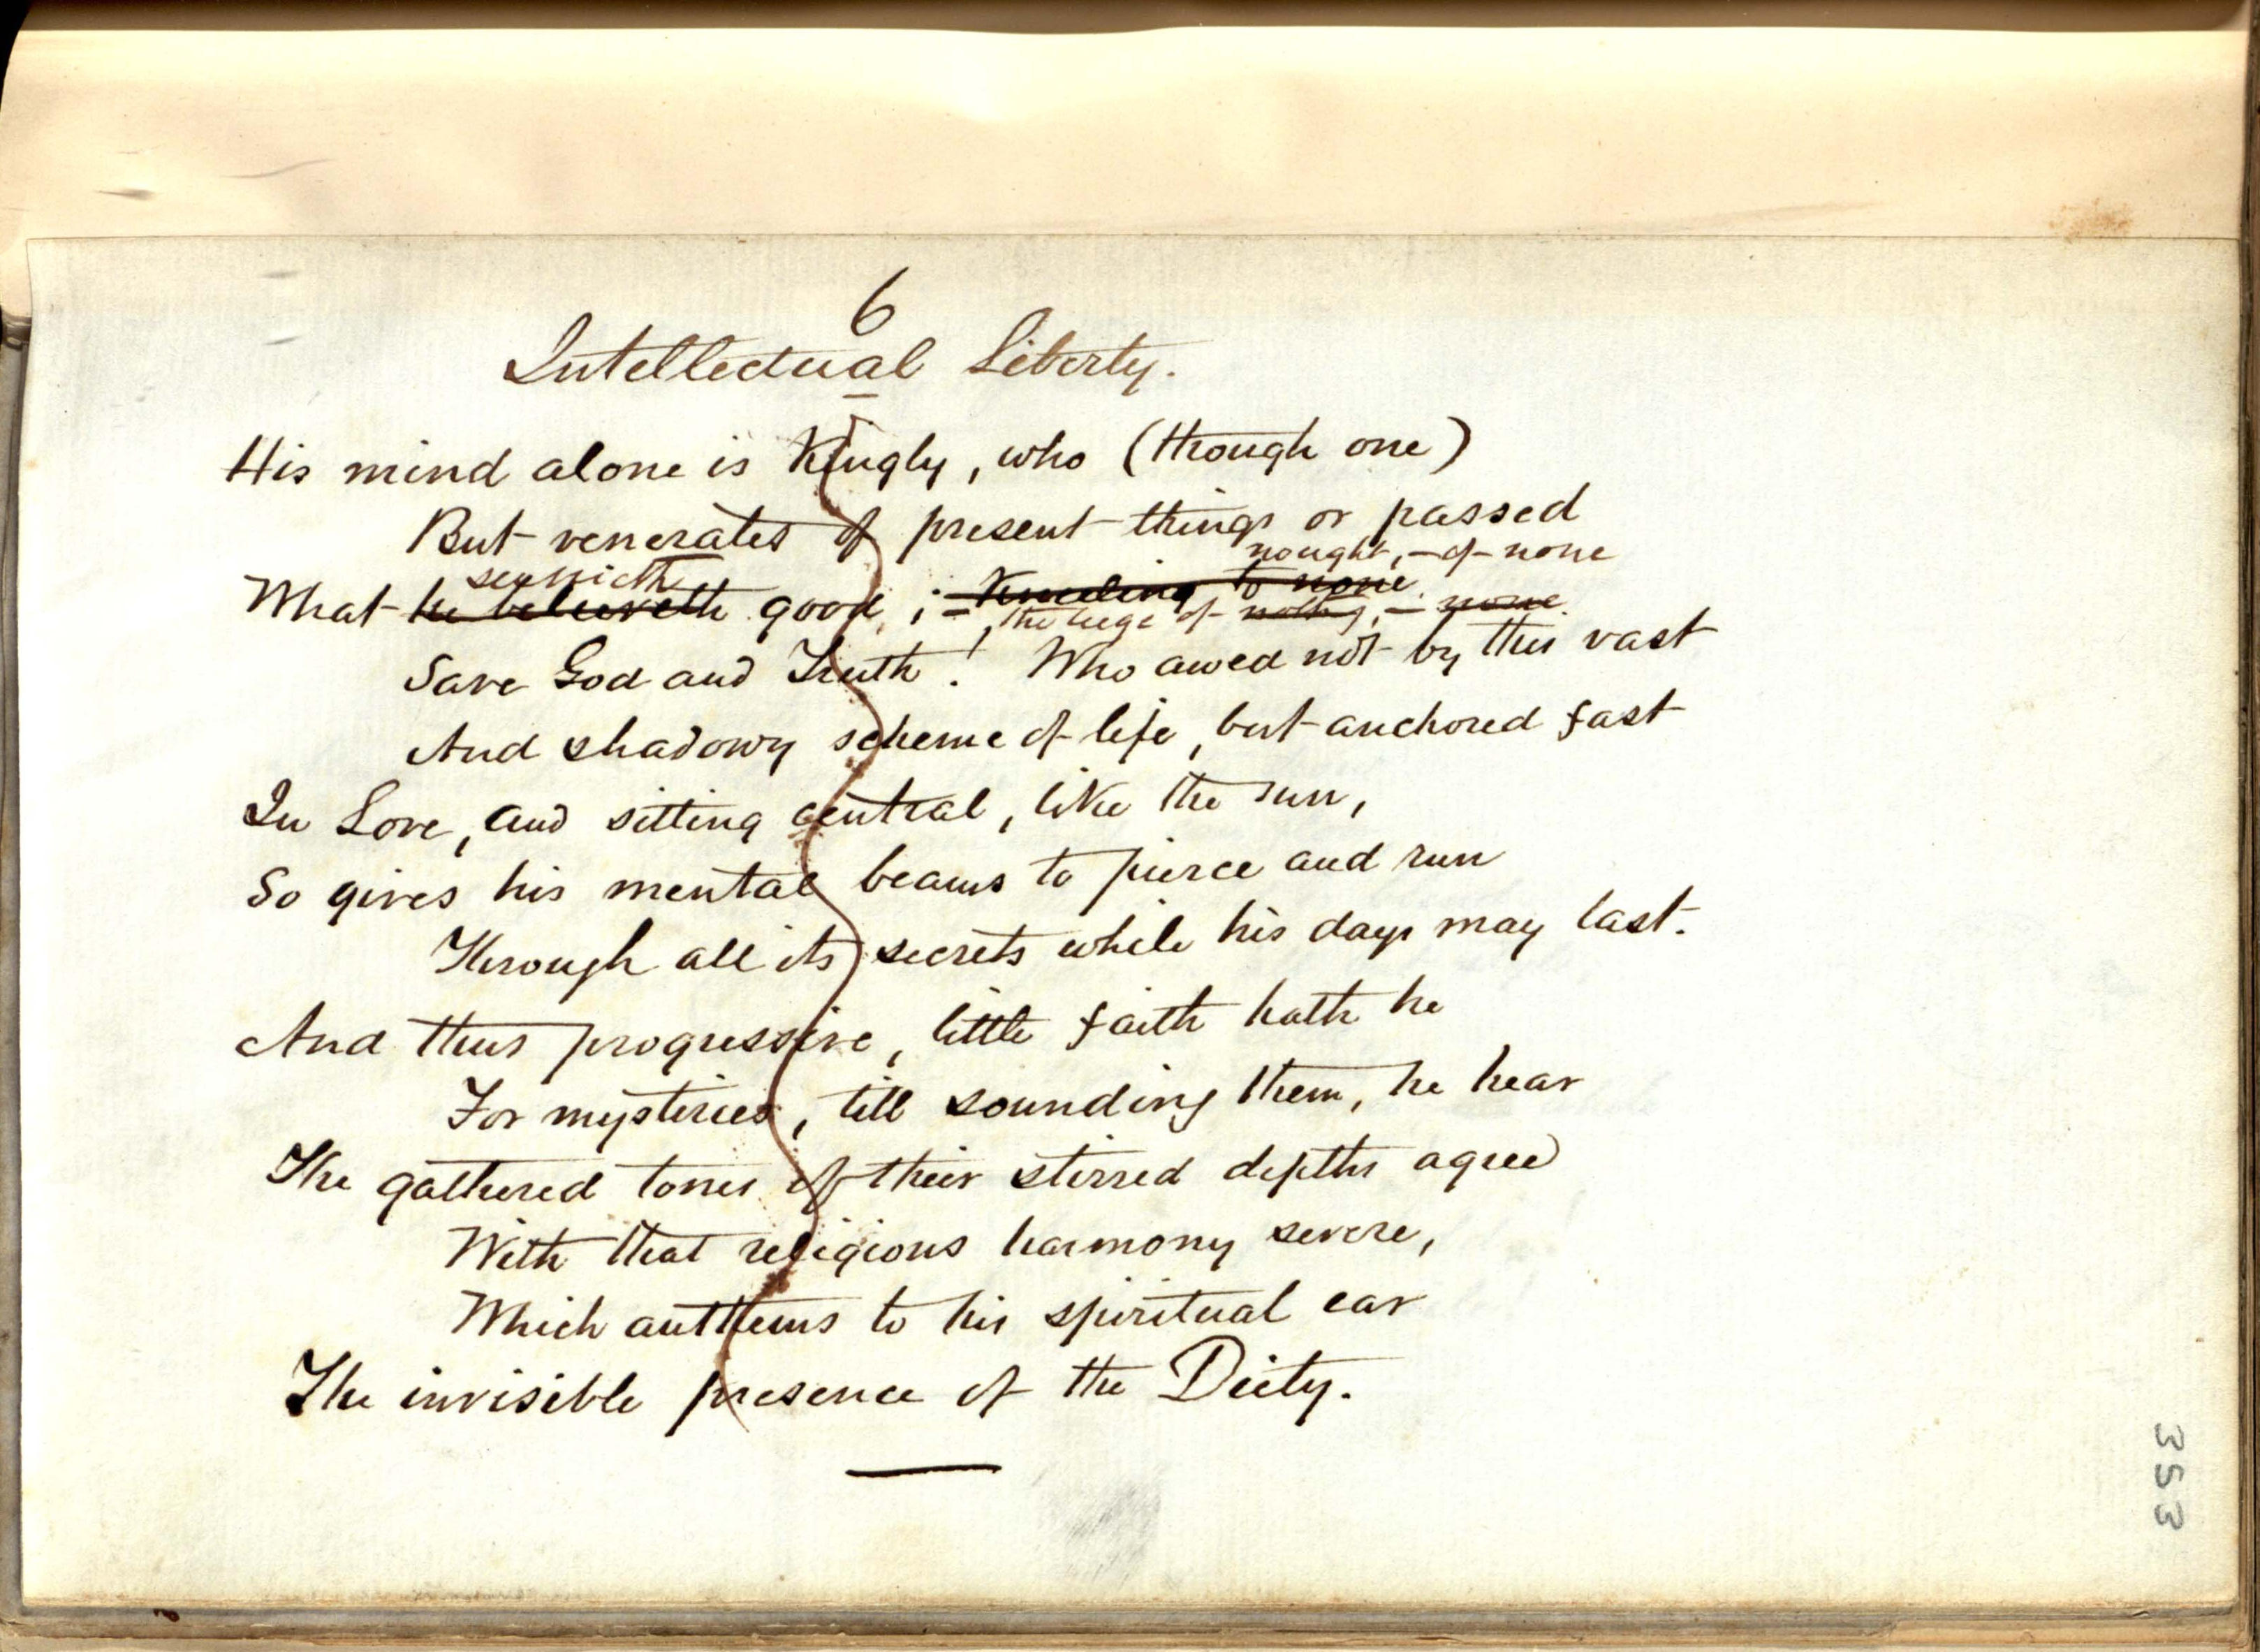 6
Intellectual Liberty.
His mind alone is Kingly, who (though one)
But venerates of present things or passed
nought, – of none
seemeth
What he believeth good; – Kneeling to none.
, the liege of nothing, – none.
Save God and Truth! Who awed not by this vast
And shadowy scheme of life, but anchored fast
In Love, and sitting central, like the sun,
So gives his mental beams to pierce and run
Through all its secrets while his days may last.
And thus progressive, little faith hath he
For mysteries, till sounding them, he hear
The gathered tones of their stirred depths agree
With that religious harmony severe,
Which anthems to his spiritual ear
The invisible presence of the Deity.
353